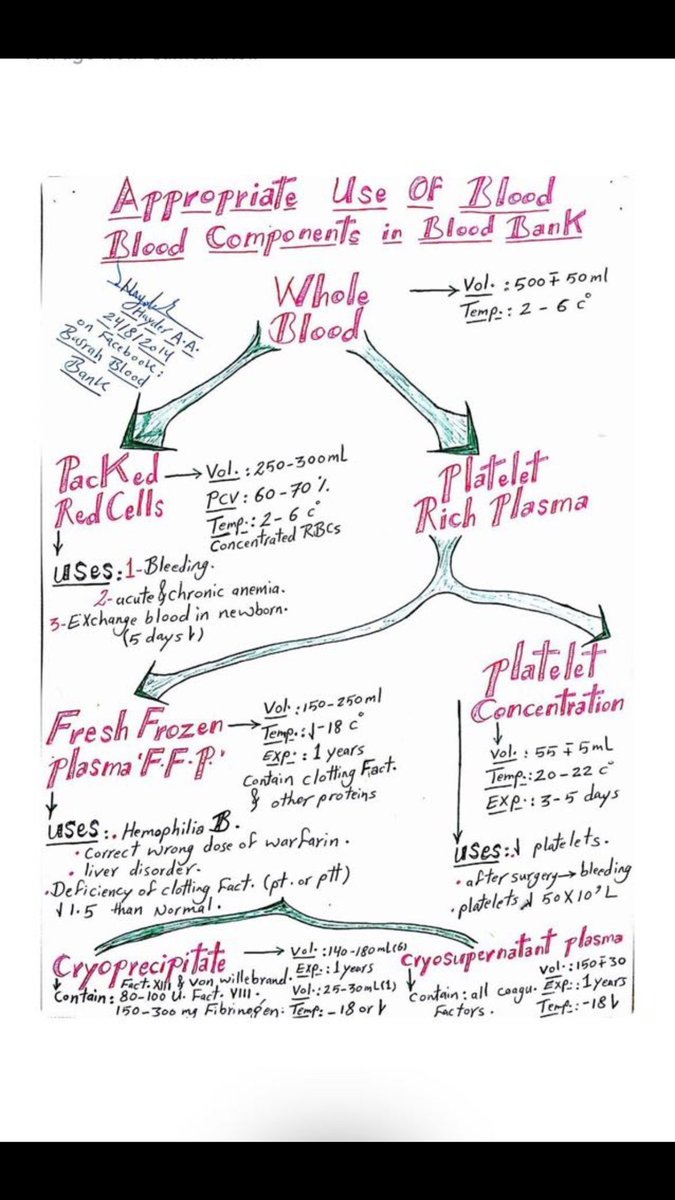 Appropriate Use Of Blood
Blood Components in Blood Bank
Hayder A.A.
24/8/2014
on Facebook:
Basrah Blood
Bank
Whole
Blood
Vol. : 500∓50ml
Temp.: 2-6 c°
Packed
Red Cells
Vol. : 250-300mL
PCV: 60-70%
Temp.: 2-6 c°
Concentrated RBCs
Uses: 1-Bleeding.
2-acute & chronic anemia.
3-Exchange blood in newborn.
(5 days↓)
Platelet
Rich Plasma
Fresh Frozen
Plasma 'F.F.P.'
Vol.: 150-250ml
Temp.: ↓-18 c°
Exp.: 1 years
Contain clotting Fact.
& other proteins
Uses:. Hemophilia B.
• Correct wrong dose of warfarin.
• liver disorder.
• Deficiency of clotting Fact. (pt. or ptt)
↓1.5 than Normal.
Platelet
Concentration
Vol.: 55∓5mL
Temp.: 20-22 c°
Exp.: 3-5 days
Uses:.↓ platelets.
• after surgery→bleeding
• platelets↓ 50X10⁹L
Cryoprecipitate
Vol.: 140-180ml(6)
Exp.: 1 years
Vol.: 25-30ml(1)
Temp: -18 or↓
Fact. XIII & Von willebrand.
Contain: 80-100 U. Fact. VIII,
150-300 mg Fibrinogen.
Cryosupernatant plasma
Vol.: 150∓30
Exp.: 1 years
Temp: -18↓
Contain: all coagu.
Factors.